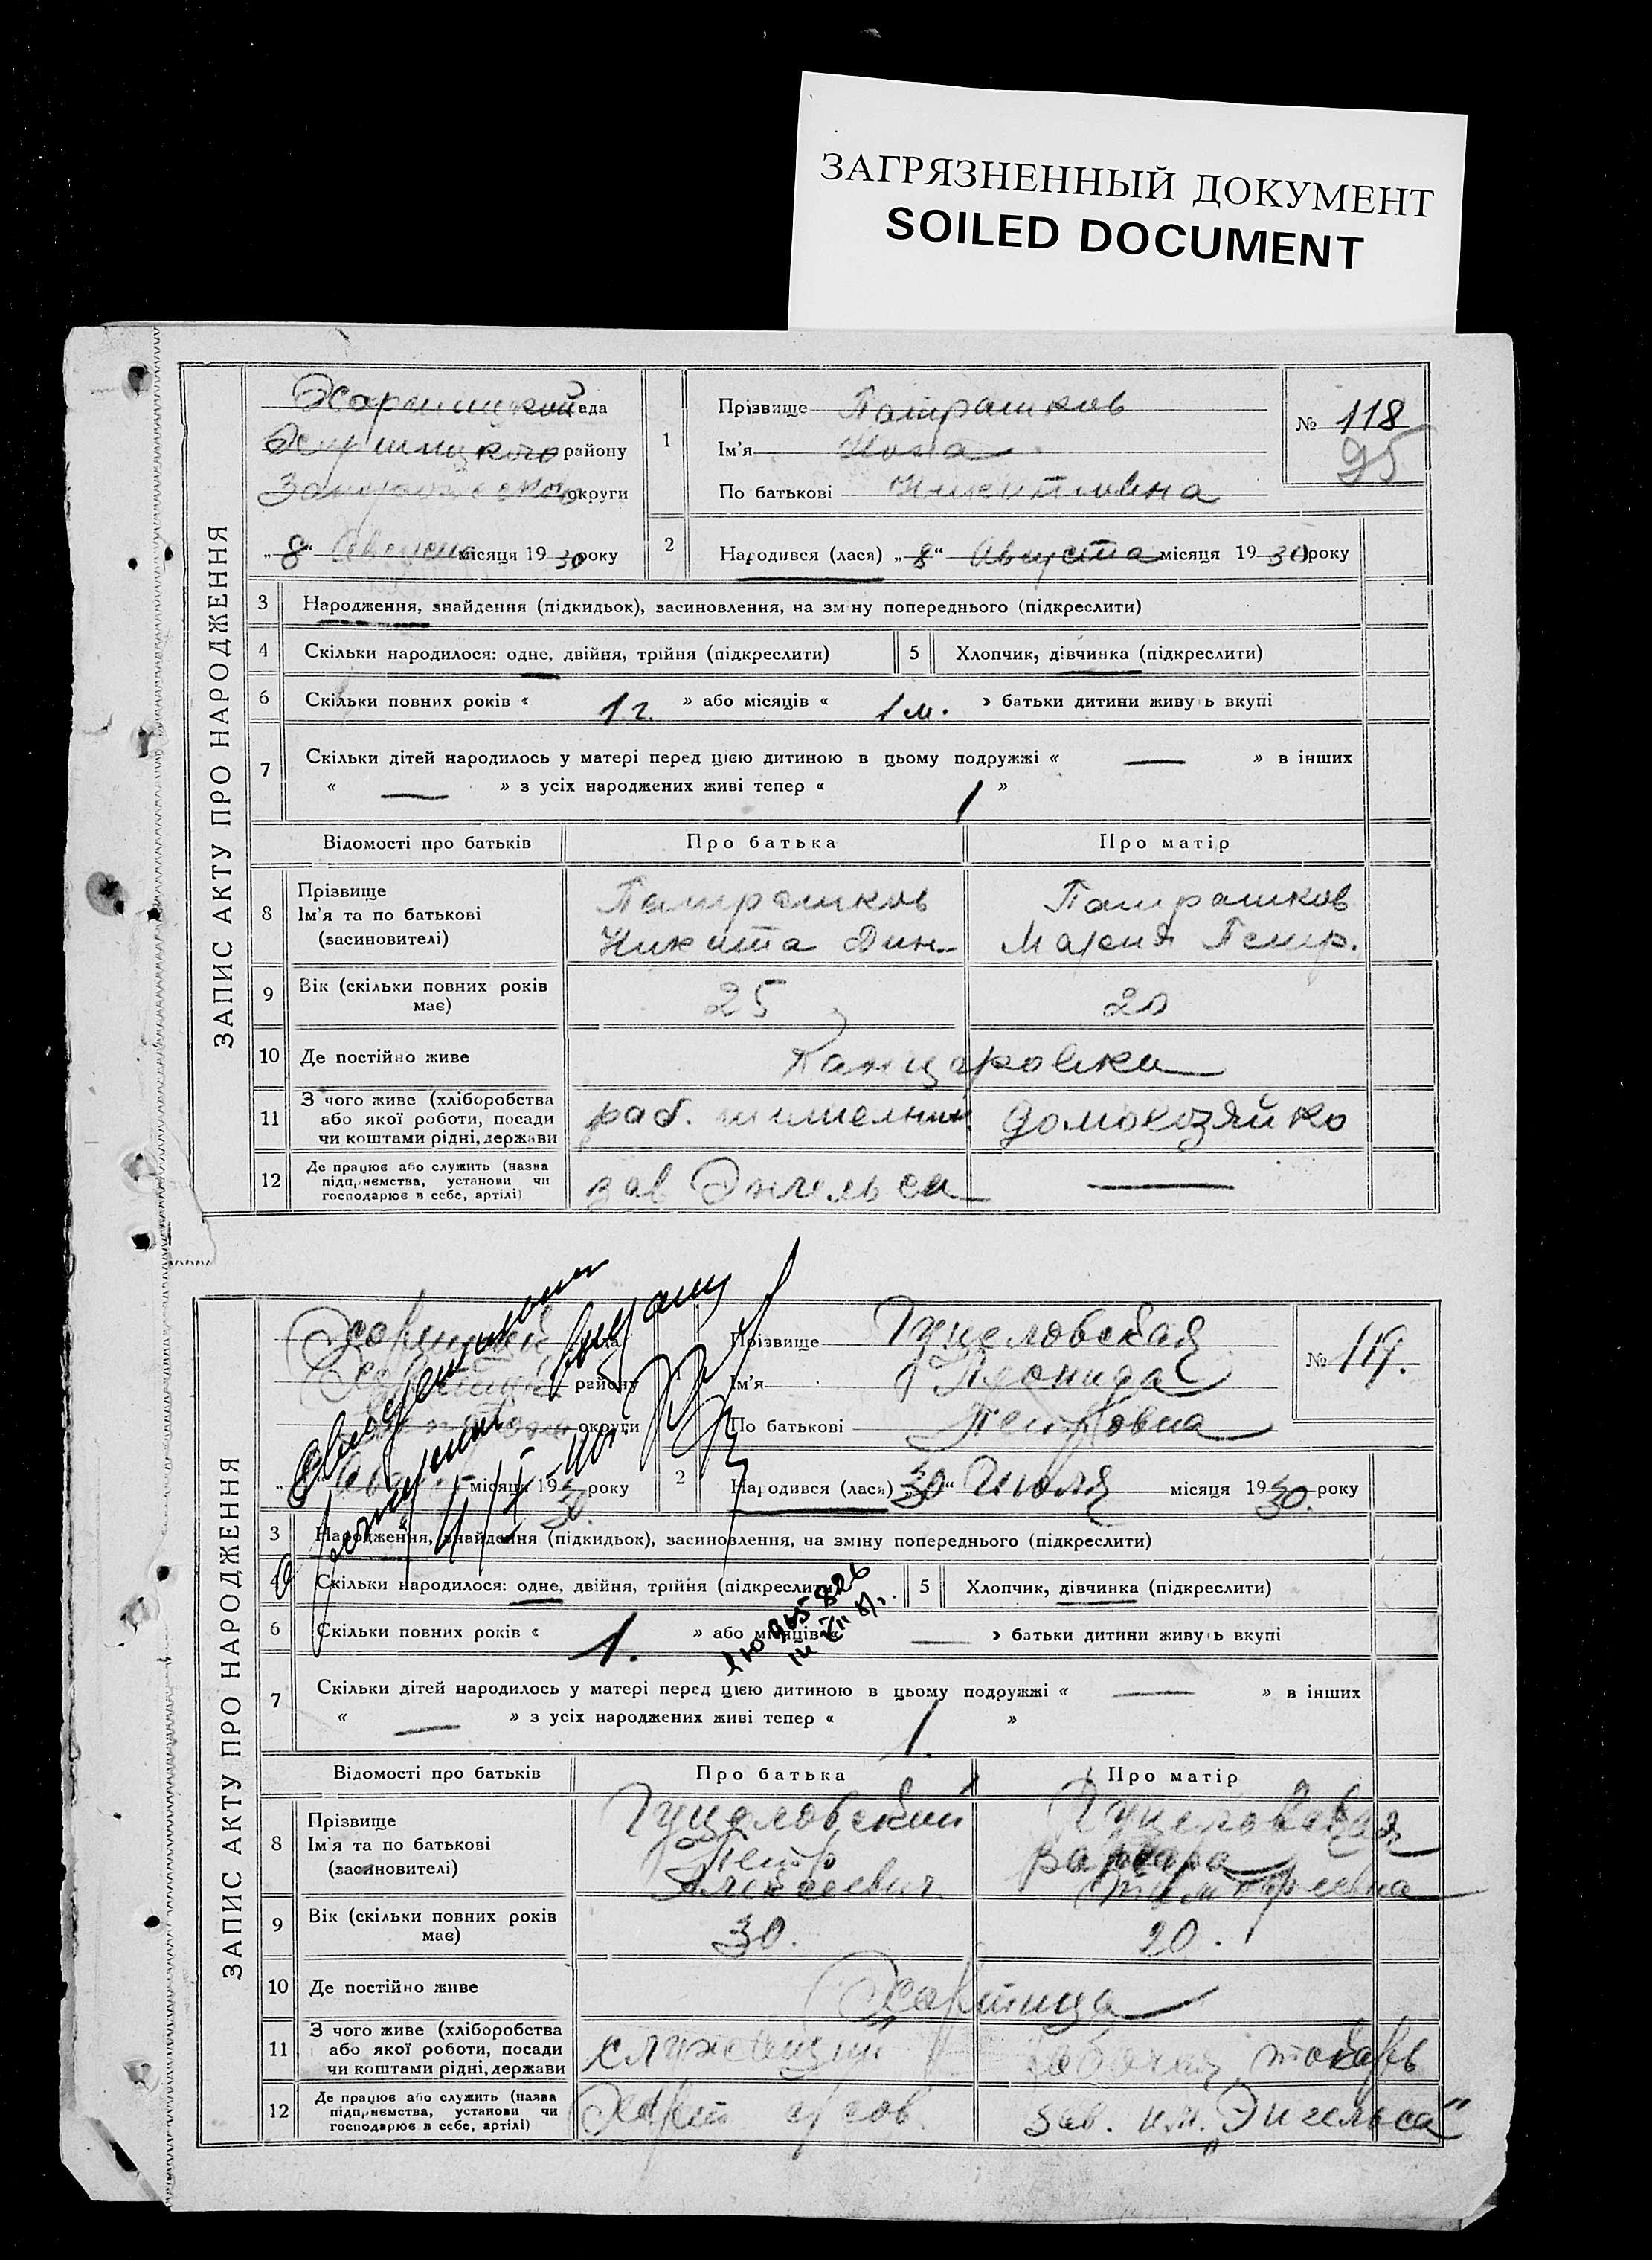 ЗАГРЯЗНЕННЫЙ ДОКУМЕНТ
SOILED DOCUMENT
ЗАПИС АКТУ ПРО НАРОДЖЕННЯ
ада
району
округи
„8“ Августа місяця 1930 року
1
Прізвище Патрашков
Ім'я
По батькові Никитовна
№ 118
95
2
Народився (лася) „8“ Августа місяця 1930 року
3 Народження, знайдення (підкидьок), засиновлення, на зміну попереднього (підкреслити)
4 Скільки народилося: одне, двійня, трійня (підкреслити)
5 Хлопчик, дівчинка (підкреслити)
6 Скільки повних років « 1 г. » або місяців « 1 м. » батьки дитини живуть вкупі
7 Скільки дітей народилось у матері перед цією дитиною в цьому подружжі « — » в інших
« — » з усіх народжених живі тепер « 1 »
Відомості про батьків Про батька Про матір
8 Прізвище
Ім'я та по батькові
(засиновителі)
Патрашков
Никита
Патрашков
Мария Петр.
9 Вік (скільки повних років
має)
25
20
10 Де постійно живе Канцаровка
11 З чого живе (хліборобства
або якої роботи, посади
чи коштами рідні, держави
раб.
домохозяйко
12 Де працює або служить (назва
підприємства, установи чи
господарює в себе, артілі)
зав Энгельса
—
ЗАПИС АКТУ ПРО НАРОДЖЕННЯ
ада
району
округи
місяця 1930 року
1
Прізвище Гуцаловская
Ім'я Леонида
По батькові Петровна
№ 119.
2
Народився (лася) „30“ Июля місяця 1930. року
3 Народження, знайдення (підкидьок), засиновлення, на зміну попереднього (підкреслити)
4 Скільки народилося: одне, двійня, трійня (підкреслити)
5 Хлопчик, дівчинка (підкреслити)
6 Скільки повних років « 1. » або місяців « — » батьки дитини живуть вкупі
7 Скільки дітей народилось у матері перед цією дитиною в цьому подружжі « — » в інших
« — » з усіх народжених живі тепер « 1. »
Відомості про батьків Про батька Про матір
8 Прізвище
Ім'я та по батькові
(засиновителі)
Гуцаловский
Петр
Алексеевич
Гуцаловская
Варвара
9 Вік (скільки повних років
має)
30.
20.
10 Де постійно живе Хортица
11 З чого живе (хліборобства
або якої роботи, посади
чи коштами рідні, держави
служащий
рабочая токарь
12 Де працює або служить (назва
підприємства, установи чи
господарює в себе, артілі)
зав. им. „Энгельса“